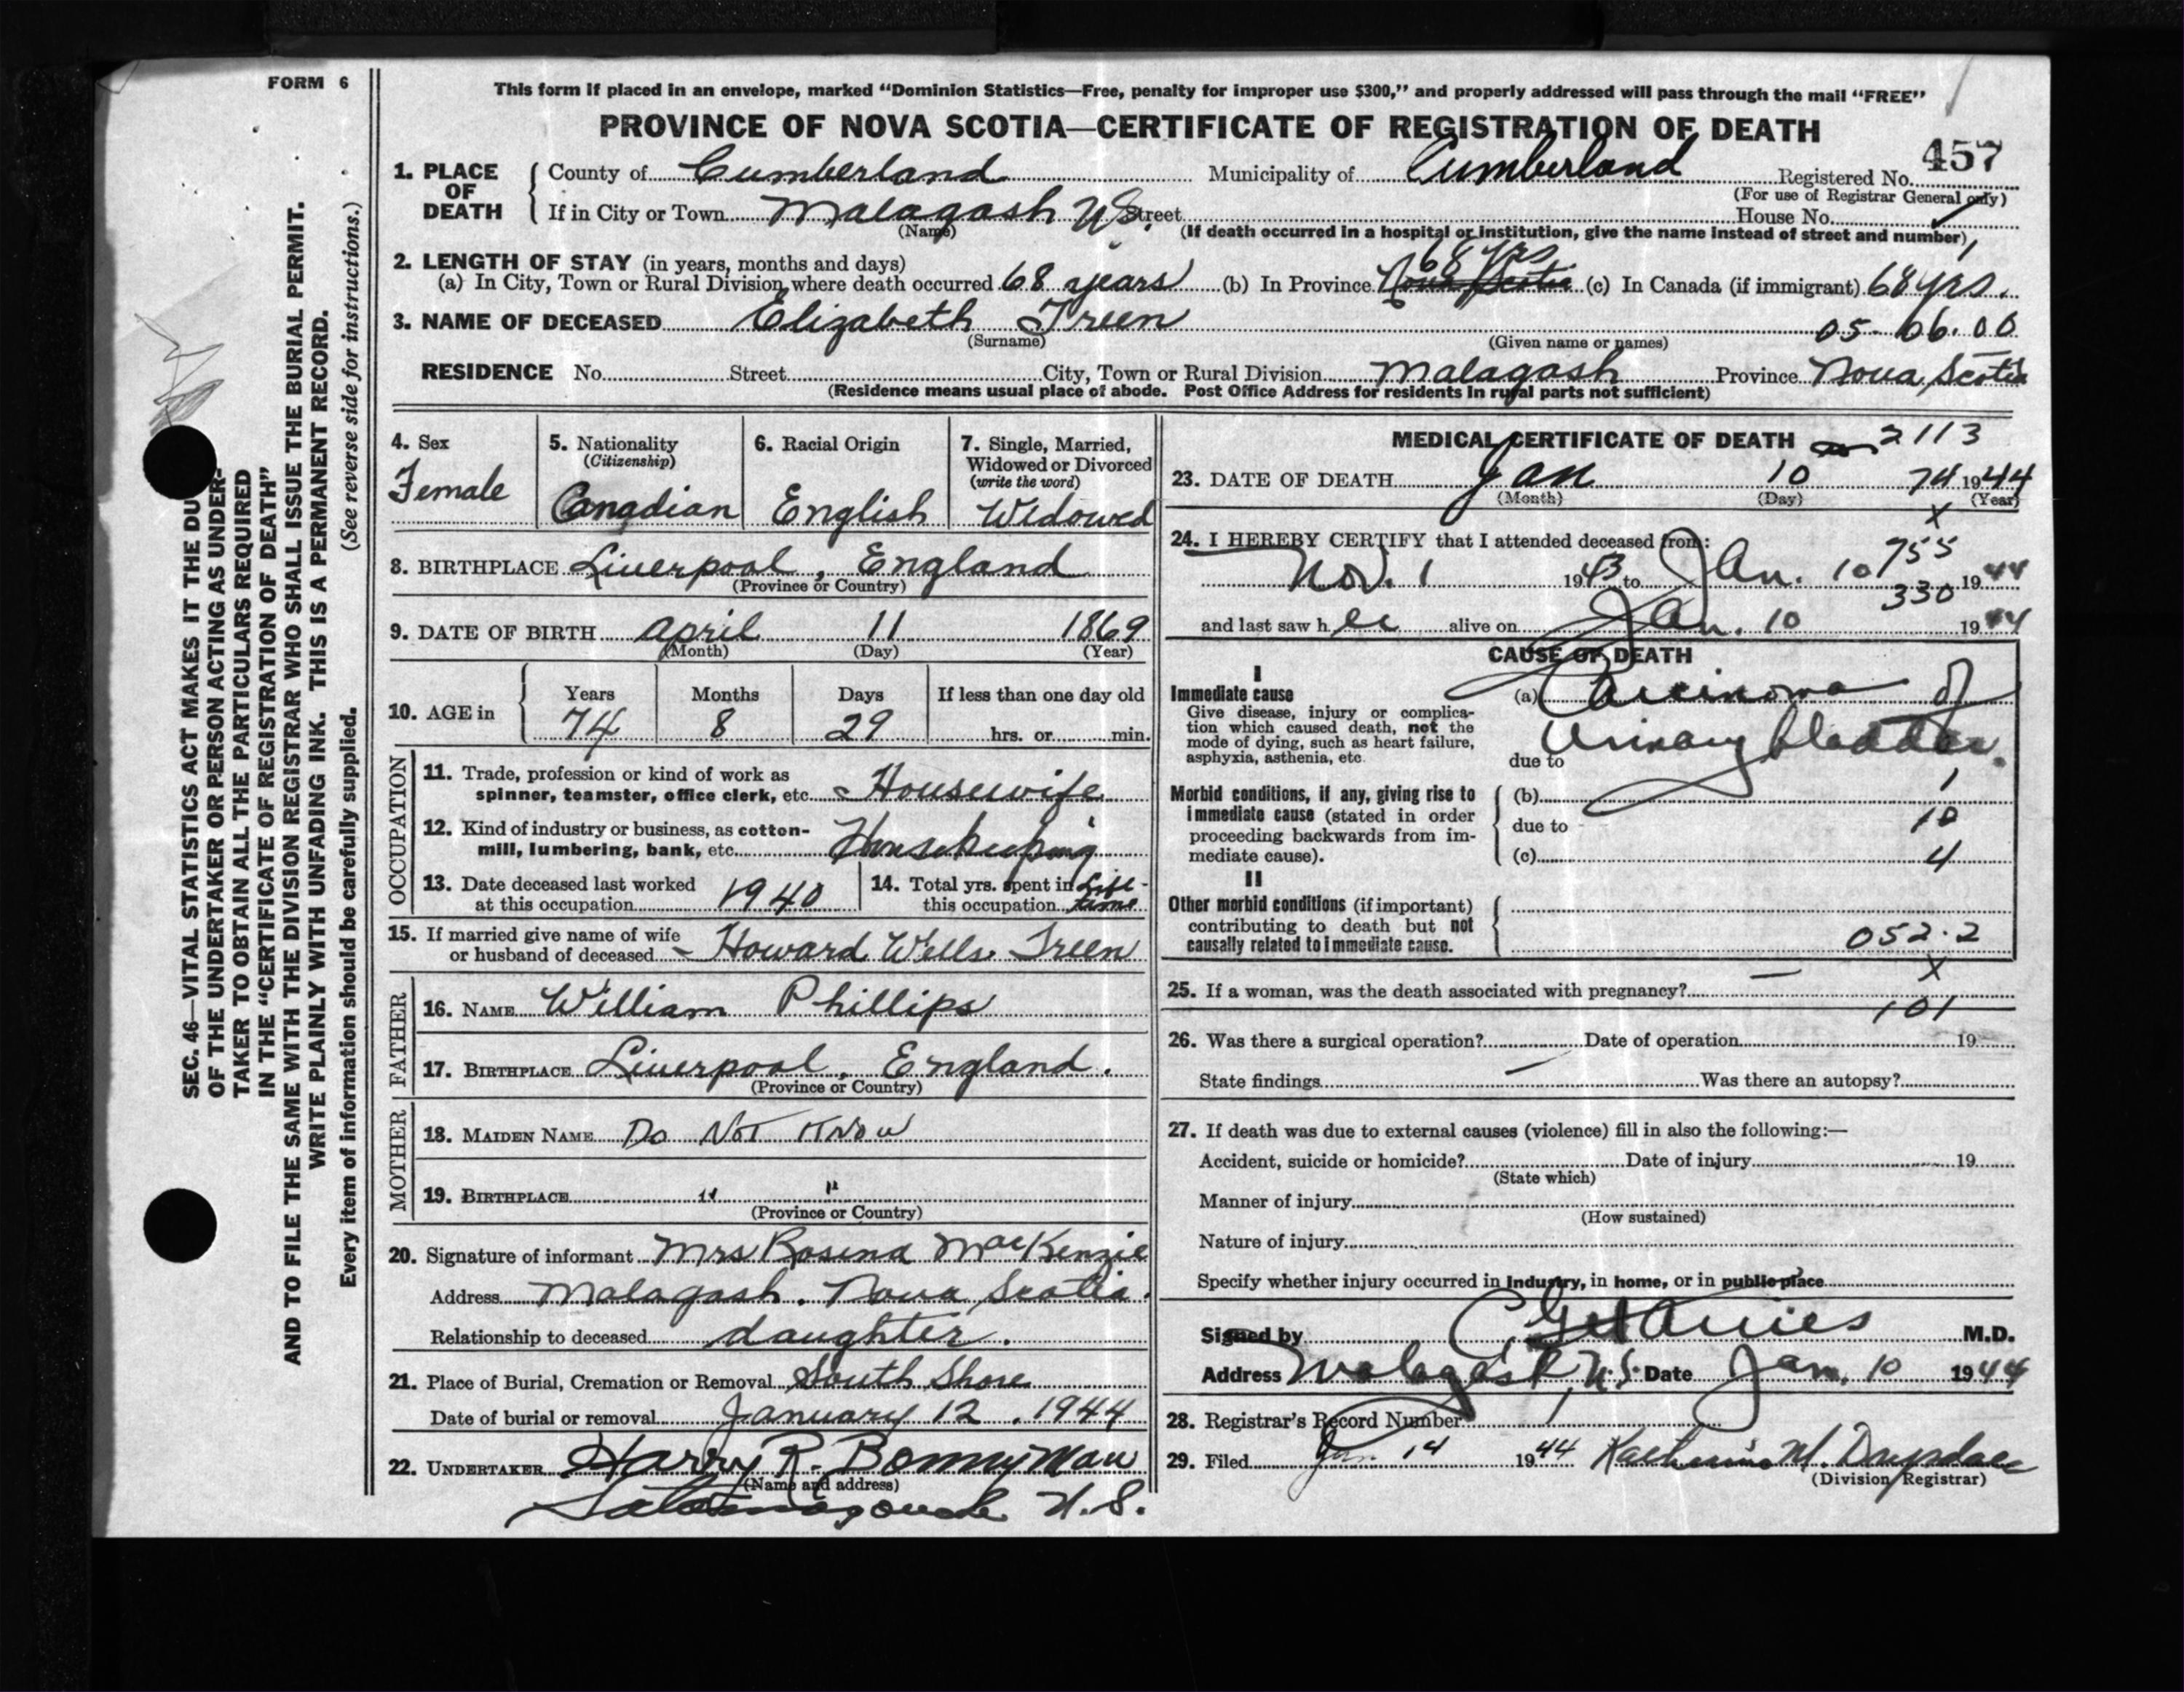 FORM 6
This form if placed in an envelope, marked “Dominion Statistics—Free, penalty for improper use $300,” and properly addressed will pass through the mail “FREE”
PROVINCE OF NOVA SCOTIA—CERTIFICATE OF REGISTRATION OF DEATH
457
1. PLACE OF DEATH County of Cumberland Municipality of Cumberland Registered No.
(For use of Registrar General only)
If in City or Town Malagash N.S. Street House No.
(Name) (If death occurred in a hospital or institution, give the name instead of street and number)
2. LENGTH OF STAY (in years, months and days)
(a) In City, Town or Rural Division where death occurred 68 years (b) In Province Nova Scotia 68 yrs (c) In Canada (if immigrant) 68 yrs.
3. NAME OF DECEASED Elizabeth Treen 05-06.00
(Surname) (Given name or names)
RESIDENCE No. Street City, Town or Rural Division Malagash Province Nova Scotia
(Residence means usual place of abode. Post Office Address for residents in rural parts not sufficient)
4. Sex Female
5. Nationality (Citizenship) Canadian
6. Racial Origin English
7. Single, Married, Widowed or Divorced (write the word) Widowed
8. BIRTHPLACE Liverpool, England
(Province or Country)
9. DATE OF BIRTH April 11 1869
(Month) (Day) (Year)
10. AGE in Years Months Days If less than one day old
74 8 29 hrs. or min.
OCCUPATION
11. Trade, profession or kind of work as
spinner, teamster, office clerk, etc. Housewife
12. Kind of industry or business, as cotton-
mill, lumbering, bank, etc. Housekeeping
13. Date deceased last worked
at this occupation 1940
14. Total yrs. spent in
this occupation Life-time
15. If married give name of wife
or husband of deceased Howard Wells Treen
FATHER
16. NAME William Phillips
17. BIRTHPLACE Liverpool, England.
(Province or Country)
MOTHER
18. MAIDEN NAME Do Not Know
19. BIRTHPLACE " "
(Province or Country)
20. Signature of informant Mrs Rosena MacKenzie
Address Malagash. Nova Scotia.
Relationship to deceased daughter.
21. Place of Burial, Cremation or Removal South Shore
Date of burial or removal January 12, 1944
22. UNDERTAKER Harry R. Bonnyman
(Name and address)
Tatamagouche N.S.
MEDICAL CERTIFICATE OF DEATH 2113
23. DATE OF DEATH Jan 10 74 1944
(Month) (Day) (Year)
X
24. I HEREBY CERTIFY that I attended deceased from:
755
Nov. 1 1943 to Jan. 10 1944
330
and last saw her alive on Jan. 10 1944
CAUSE OF DEATH
I
Immediate cause (a) Carcinoma of
Give disease, injury or complica-
tion which caused death, not the
mode of dying, such as heart failure,
asphyxia, asthenia, etc.
Urinary bladder.
due to
Morbid conditions, if any, giving rise to
immediate cause (stated in order
proceeding backwards from im-
mediate cause).
(b) 1
due to 10
(c) 4
II
Other morbid conditions (if important)
contributing to death but not
causally related to immediate cause.
052.2
X
25. If a woman, was the death associated with pregnancy? —
101
26. Was there a surgical operation? Date of operation 19
State findings — Was there an autopsy?
27. If death was due to external causes (violence) fill in also the following:—
Accident, suicide or homicide? Date of injury 19
(State which)
Manner of injury
(How sustained)
Nature of injury
Specify whether injury occurred in Industry, in home, or in public place
Signed by M.D.
Address Malagash, N.S. Date Jan. 10 1944
28. Registrar's Record Number 1
29. Filed Jan. 14 1944 M. Drysdale
(Division Registrar)
SEC. 46—VITAL STATISTICS ACT MAKES IT THE DU
OF THE UNDERTAKER OR PERSON ACTING AS UNDER-
TAKER TO OBTAIN ALL THE PARTICULARS REQUIRED
IN THE “CERTIFICATE OF REGISTRATION OF DEATH”
AND TO FILE THE SAME WITH THE DIVISION REGISTRAR WHO SHALL ISSUE THE BURIAL PERMIT.
WRITE PLAINLY WITH UNFADING INK. THIS IS A PERMANENT RECORD.
Every item of information should be carefully supplied. (See reverse side for instructions.)